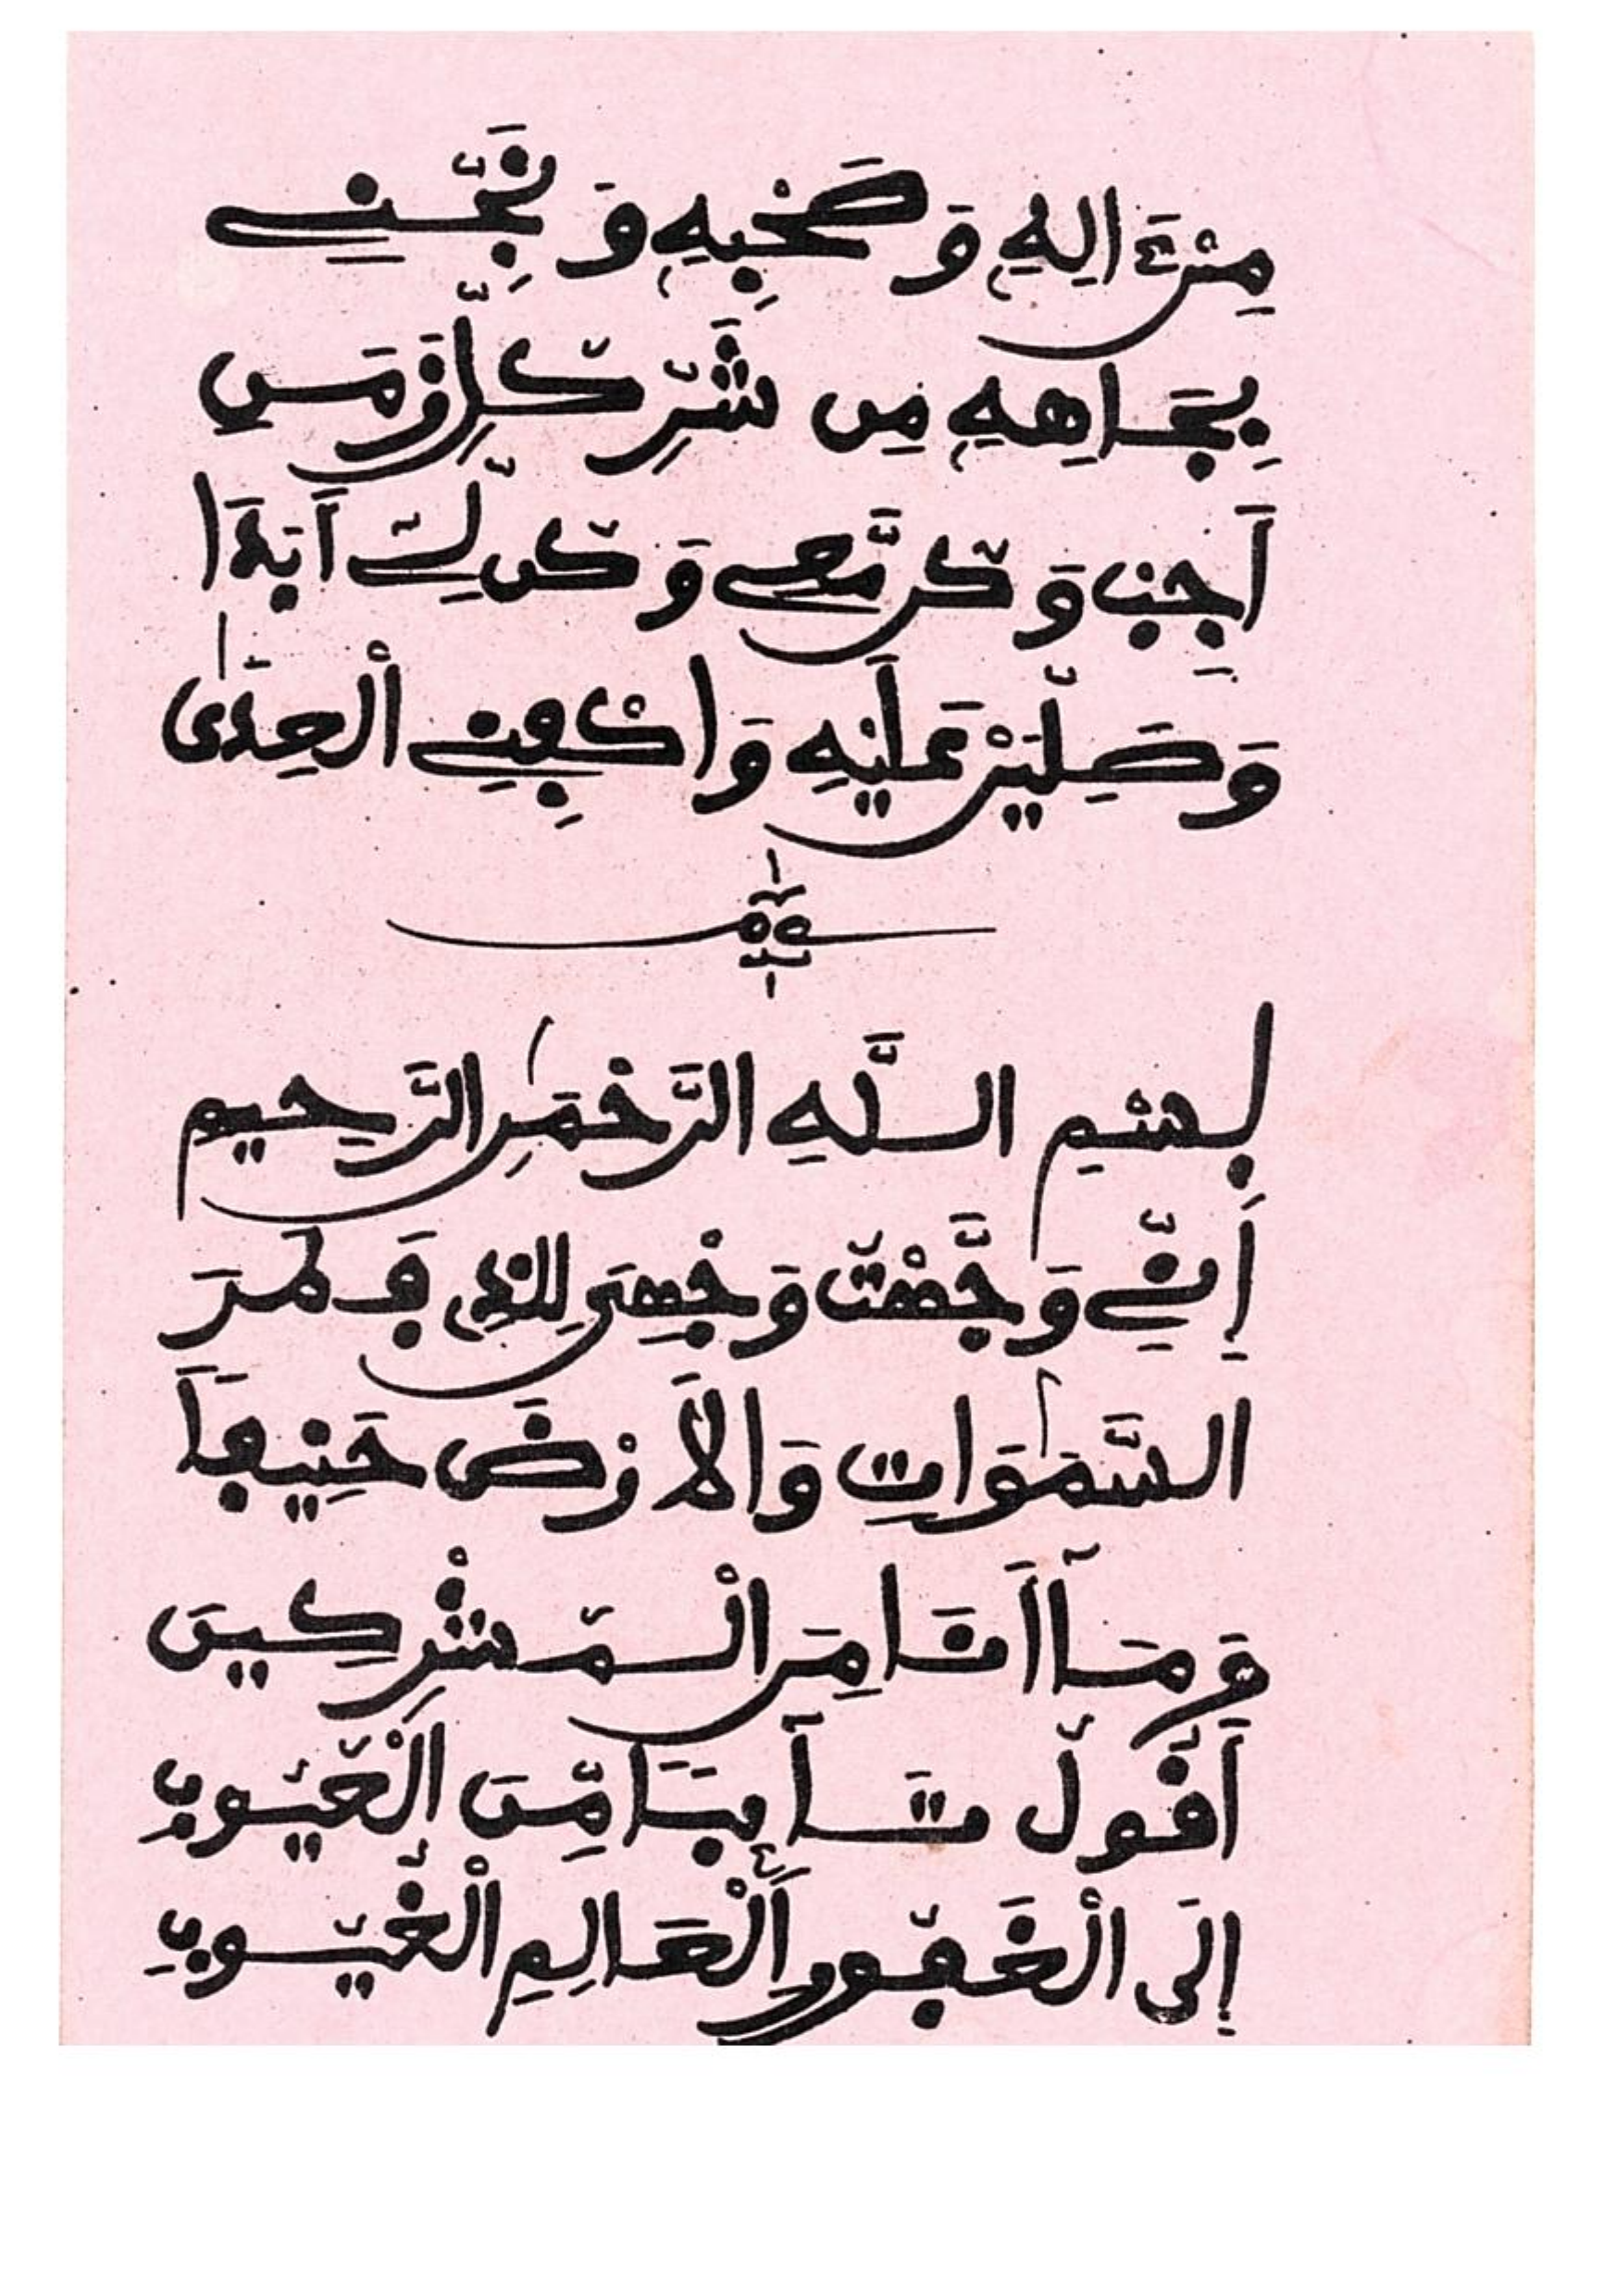 مِنْ ءَالِهِ وَصَحْبِهِ وَنَجِّنِي
بِجَاهِهِ مِن شَرِّ كُلِّ زَمَنِ
أَجِبْ وَكُن مَّعِي وَكُن لِّي أَبَدَا
وَصَلِّيَنْ عَلَيْهِ وَاكْفِنِي الْعِدَىٰ
بِسْمِ اللَّهِ الرَّحْمَٰنِ الرَّحِيمِ
إِنِّي وَجَّهْتُ وَجْهِيَ لِلَّذِي فَطَرَ
السَّمَٰوَاتِ وَالأَرْضَ حَنِيفاً
وَمَآ أَنَا مِنَ الْمُشْرِكِينَ
أَقُولُ تَآئِبًا مِّنَ الْعُيُوبِ
إِلَى الْغَفُورِ الْعَالِمِ الْغُيُوبِ